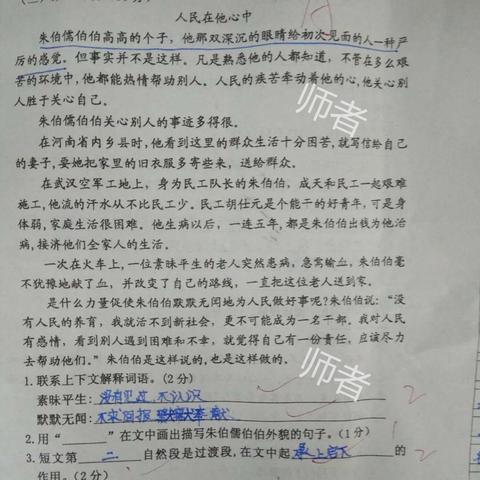 人民在他心中
朱伯儒伯伯高高的个子,他那双深沉的眼睛给初次见面的人一种严
厉的感觉。但事实并不是这样。凡是熟悉他的人都知道,不管在多么艰
苦的环境中,他都能热情帮助别人。人民的疾苦牵动着他的心,他关心别
人胜于关心自己。
朱伯儒伯伯关心别人的事迹多得很。
在河南省内乡县时,他看到这里的群众生活十分困苦,就写信给自己
的妻子,要她把家里的旧衣服多寄些来,送给群众。
在武汉空军工地上,身为民工队长的朱伯伯,成天和民工一起艰难
施工,他流的汗水从不比民工少。民工胡仕元是个能干的好青年,可是身
体弱,家庭生活很困难。他生病以后,一连五年,都是朱伯伯出钱为他治
病,接济他们全家人的生活。
一次在火车上,一位素昧平生的老人突然患病,急需输血,朱伯伯毫
不犹豫地献了血,并改变了自己的路线,一直把这位老人送到家。
是什么力量促使朱伯伯默默无闻地为人民做好事呢?朱伯伯说:“没
有人民的养育,我就活不到新社会,更不可能成为一名干部。我对人民
有感情,看到别人遇到困难和不幸,就觉得自己有一份责任,应该尽力
去帮助他们。”朱伯伯是这样说的,也是这样做的。
1.联系上下文解释词语。(2分)
素昧平生:没有见过,不认识
默默无闻:不求回报
2.用“______”在文中画出描写朱伯儒伯伯外貌的句子。(1分)
3.短文第 二 自然段是过渡段,在文中起 承上启下 的
作用。(2分)
师者
师者